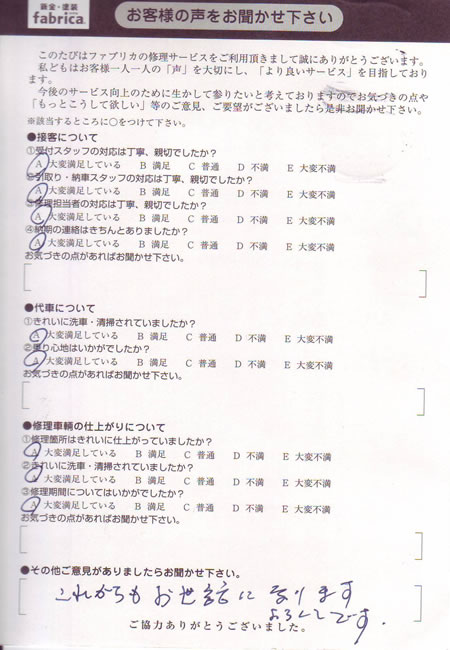 鈑金・塗装
fabrica.
お客様の声をお聞かせ下さい
このたびはファブリカの修理サービスをご利用頂きまして誠にありがとうございます。
私どもはお客様一人一人の「声」を大切にし、「より良いサービス」を目指しており
ます。
今後のサービス向上のために生かして参りたいと考えておりますのでお気づきの点や
「もっとこうして欲しい」等のご意見、ご要望がございましたら是非お聞かせ下さい。
※該当するところに○をつけて下さい。
●接客について
①受付スタッフの対応は丁寧、親切でしたか?
A 大変満足している B 満足 C 普通 D 不満 E 大変不満
②引取り・納車スタッフの対応は丁寧、親切でしたか?
A 大変満足している B 満足 C 普通 D 不満 E 大変不満
③修理担当者の対応は丁寧、親切でしたか?
A 大変満足している B 満足 C 普通 D 不満 E 大変不満
④納期の連絡はきちんとありましたか?
A 大変満足している B 満足 C 普通 D 不満 E 大変不満
お気づきの点があればお聞かせ下さい。
●代車について
①きれいに洗車・清掃されていましたか?
A 大変満足している B 満足 C 普通 D 不満 E 大変不満
②乗り心地はいかがでしたか?
A 大変満足している B 満足 C 普通 D 不満 E 大変不満
お気づきの点があればお聞かせ下さい。
●修理車輌の仕上がりについて
①修理箇所はきれいに仕上がっていましたか?
A 大変満足している B 満足 C 普通 D 不満 E 大変不満
②きれいに洗車・清掃されていましたか?
A 大変満足している B 満足 C 普通 D 不満 E 大変不満
③修理期間についてはいかがでしたか?
A 大変満足している B 満足 C 普通 D 不満 E 大変不満
お気づきの点があればお聞かせ下さい。
●その他ご意見がありましたらお聞かせ下さい。
これからもお世話になります
よろしくです.
ご協力ありがとうございました。